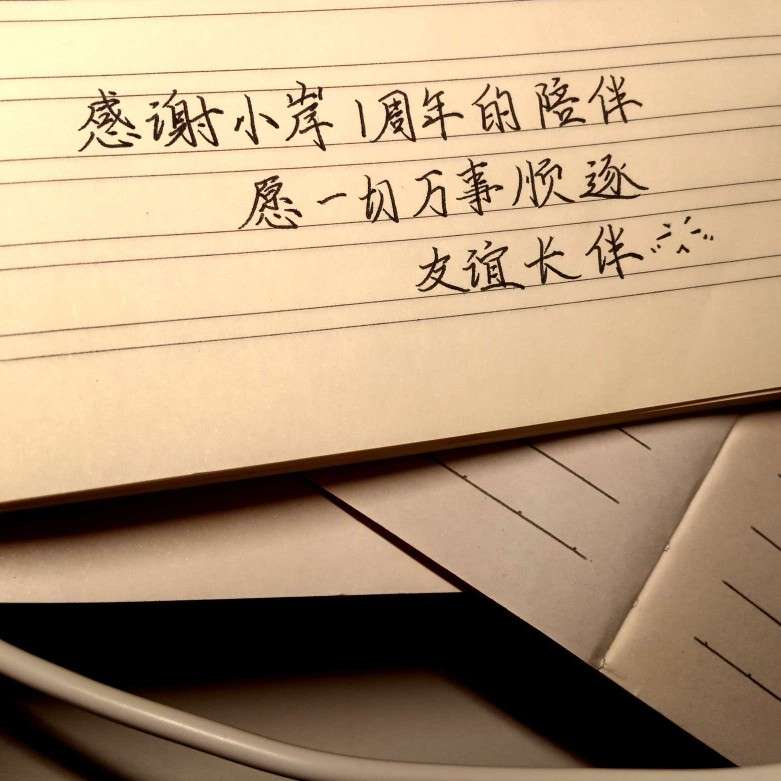 感谢小岸1周年的陪伴
愿一切万事顺逐
友谊长伴